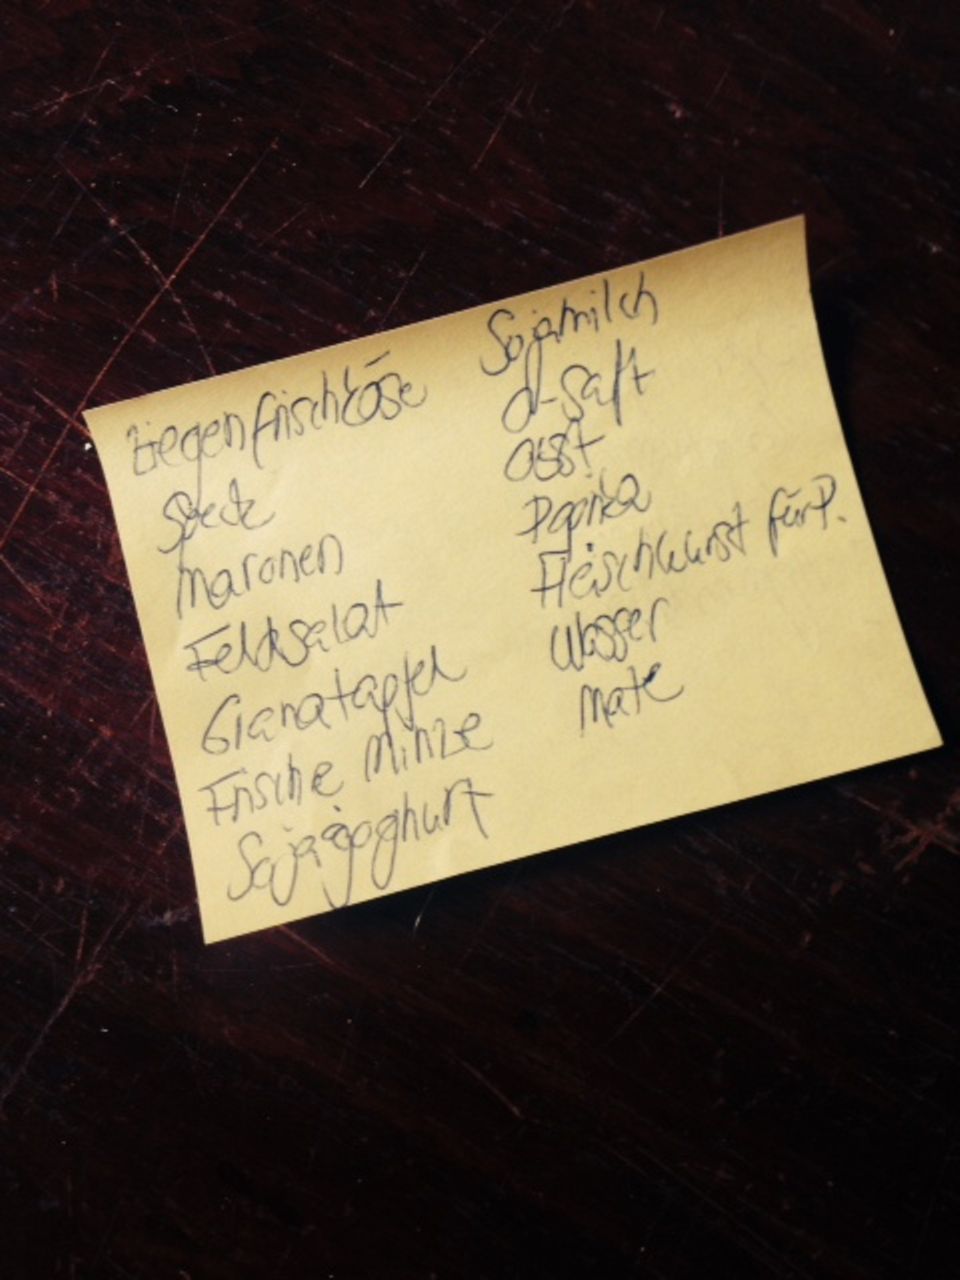 Ziegenfrischkäse
Speck
Maronen
Feldsalat
Granatapfel
Frische Minze
Sojajoghurt
Sojamilch
O-Saft
Obst
Paprika
Fleischwurst für P.
Wasser
Mate